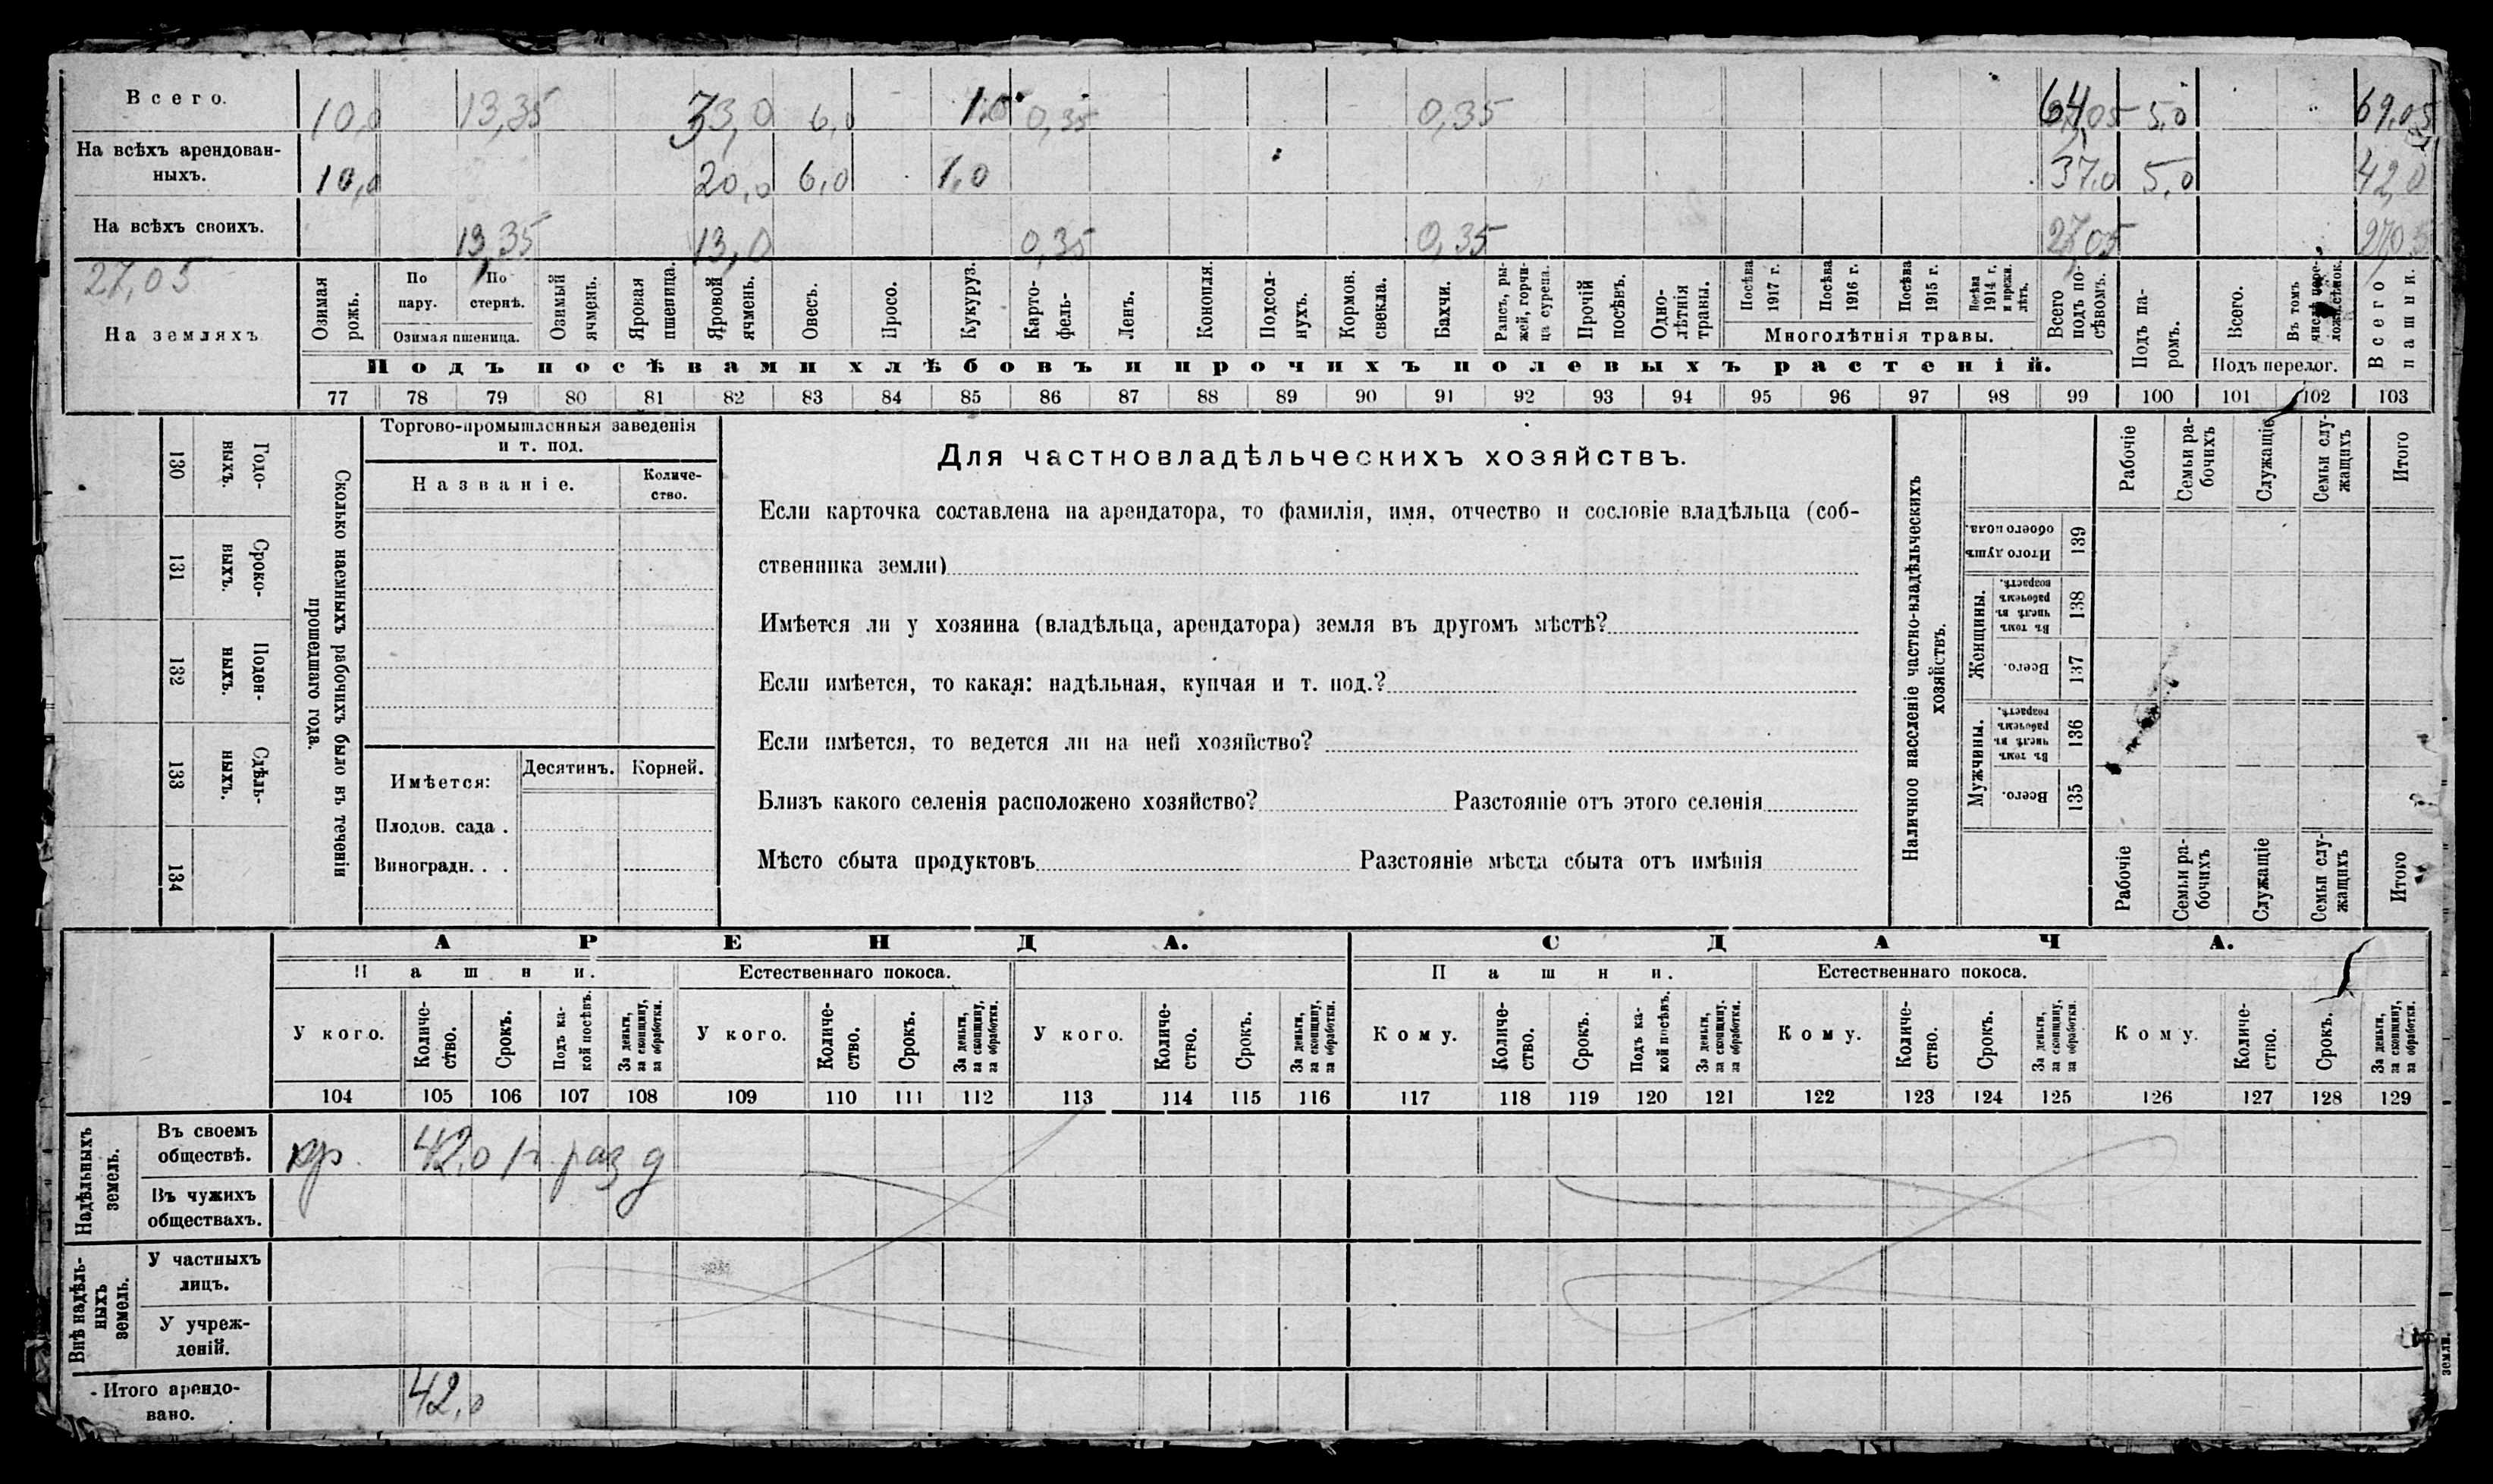 Всего. 10,0 13,35 33,0 6,0 1.0 0,35 0,35 64,05 5,0 69,05
На всѣхъ арендован-
ныхъ. 10,0 20,0 6,0 1,0 37,0 5,0 42,0
На всѣхъ своихъ. 13,35 13,0 0,35 0,35 27,05 27,05
27,05
На земляхъ
Озимая рожь.
По пару.
По стернѣ.
Озимая пшеница.
Озимый ячмень.
Яровая пшеница.
Яровой ячмень.
Овесъ.
Просо.
Кукуруз.
Карто-
фель-
Ленъ.
Конопля.
Подсол-
нухъ.
Кормов. свекла.
Бахчи.
Рапсъ, ры-
жей, горчи-
ца сурепа.
Прочій посѣвъ.
Одно-
лѣтнія травы.
Посѣва 1917 г.
Посѣва 1916 г.
Посѣва 1915 г.
Посѣва 1914 г. и прежн. лѣтъ.
Многолѣтнія травы.
Всего подъ по-
сѣвомъ.
Подъ посѣвами хлѣбовъ и прочихъ полевыхъ растеній.
Подъ па-
ромъ.
Всего.
Въ томъ числѣ
Подъ перелог.
Всего пашни.
77 78 79 80 81 82 83 84 85 86 87 88 89 90 91 92 93 94 95 96 97 98 99 100 101 102 103
Сколько наемныхъ рабочихъ было въ теченіи
прошедшаго года.
Годо-
выхъ. 130
Сроко-
выхъ. 131
Поден-
ныхъ. 132
Сдѣль-
ныхъ. 133
134
Торгово-промышленныя заведенія
и т. под.
Названіе.
Количе-
ство.
Имѣется:
Десятинъ. Корней.
Плодов. сада .
Виноградн. . .
Для частновладѣльческихъ хозяйствъ.
Если карточка составлена на арендатора, то фамилія, имя, отчество и сословіе владѣльца (соб-
ственника земли)
Имѣется ли у хозяина (владѣльца, арендатора) земля въ другомъ мѣстѣ?
Если имѣется, то какая: надѣльная, купчая и т. под.?
Если имѣется, то ведется ли на ней хозяйство?
Близъ какого селенія расположено хозяйство? Разстояніе отъ этого селенія
Мѣсто сбыта продуктовъ Разстояніе мѣста сбыта отъ имѣнія
Наличное населеніе частно-владѣльческихъ
хозяйствъ.
Рабочіе
Семьи ра-
бочихъ
Служащіе
Семьи слу-
жащихъ
Итого
Итого душъ обоего пола. 139
Женщины.
Въ томъ числѣ въ рабочемъ возрастѣ. 138
Всего. 137
Мужчины.
Въ томъ числѣ въ рабочемъ возрастѣ. 136
Всего. 135
Рабочіе
Семьи ра-
бочихъ
Служащіе
Семьи слу-
жащихъ
Итого
АРЕНДА. СДАЧА.
Пашни. Естественнаго покоса. Пашни. Естественнаго покоса.
У кого.
Количе-
ство.
Срокъ.
Подъ ка-
кой посѣвъ.
За деньги,
за скопщину,
за обработки.
У кого.
Количе-
ство.
Срокъ.
За деньги,
за скопщину,
за обработки.
У кого.
Количе-
ство.
Срокъ.
За деньги,
за скопщину,
за обработки.
Кому.
Количе-
ство.
Срокъ.
Подъ ка-
кой посѣвъ.
За деньги,
за скопщину,
за обработки.
Кому.
Количе-
ство.
Срокъ.
За деньги,
за скопщину,
за обработки.
Кому.
Количе-
ство.
Срокъ.
За деньги,
за скопщину,
за обработки.
104 105 106 107 108 109 110 111 112 113 114 115 116 117 118 119 120 121 122 123 124 125 126 127 128 129
Надѣльныхъ
земель.
Въ своемъ
обществѣ. 42,0 раз д
Въ чужихъ
обществахъ.
Внѣ надѣль-
ныхъ
земель.
У частныхъ
лицъ.
У учреж-
деній.
Итого арендо-
вано. 42,0
земли.